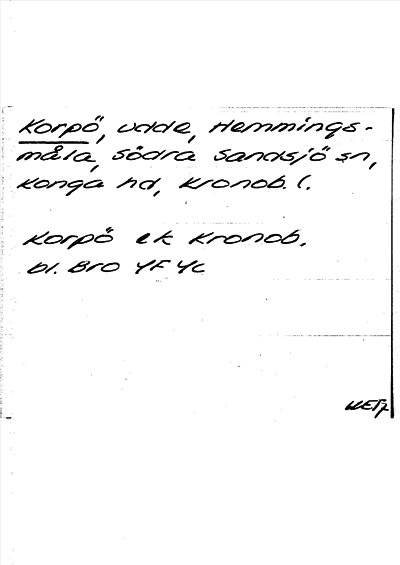 Korpö, udde, Hemmings-
måla, Södra Sandsjö sn,
Konga hd, Kronob. l.
Korpö ek Kronob.
bl. Bro 4F 4c